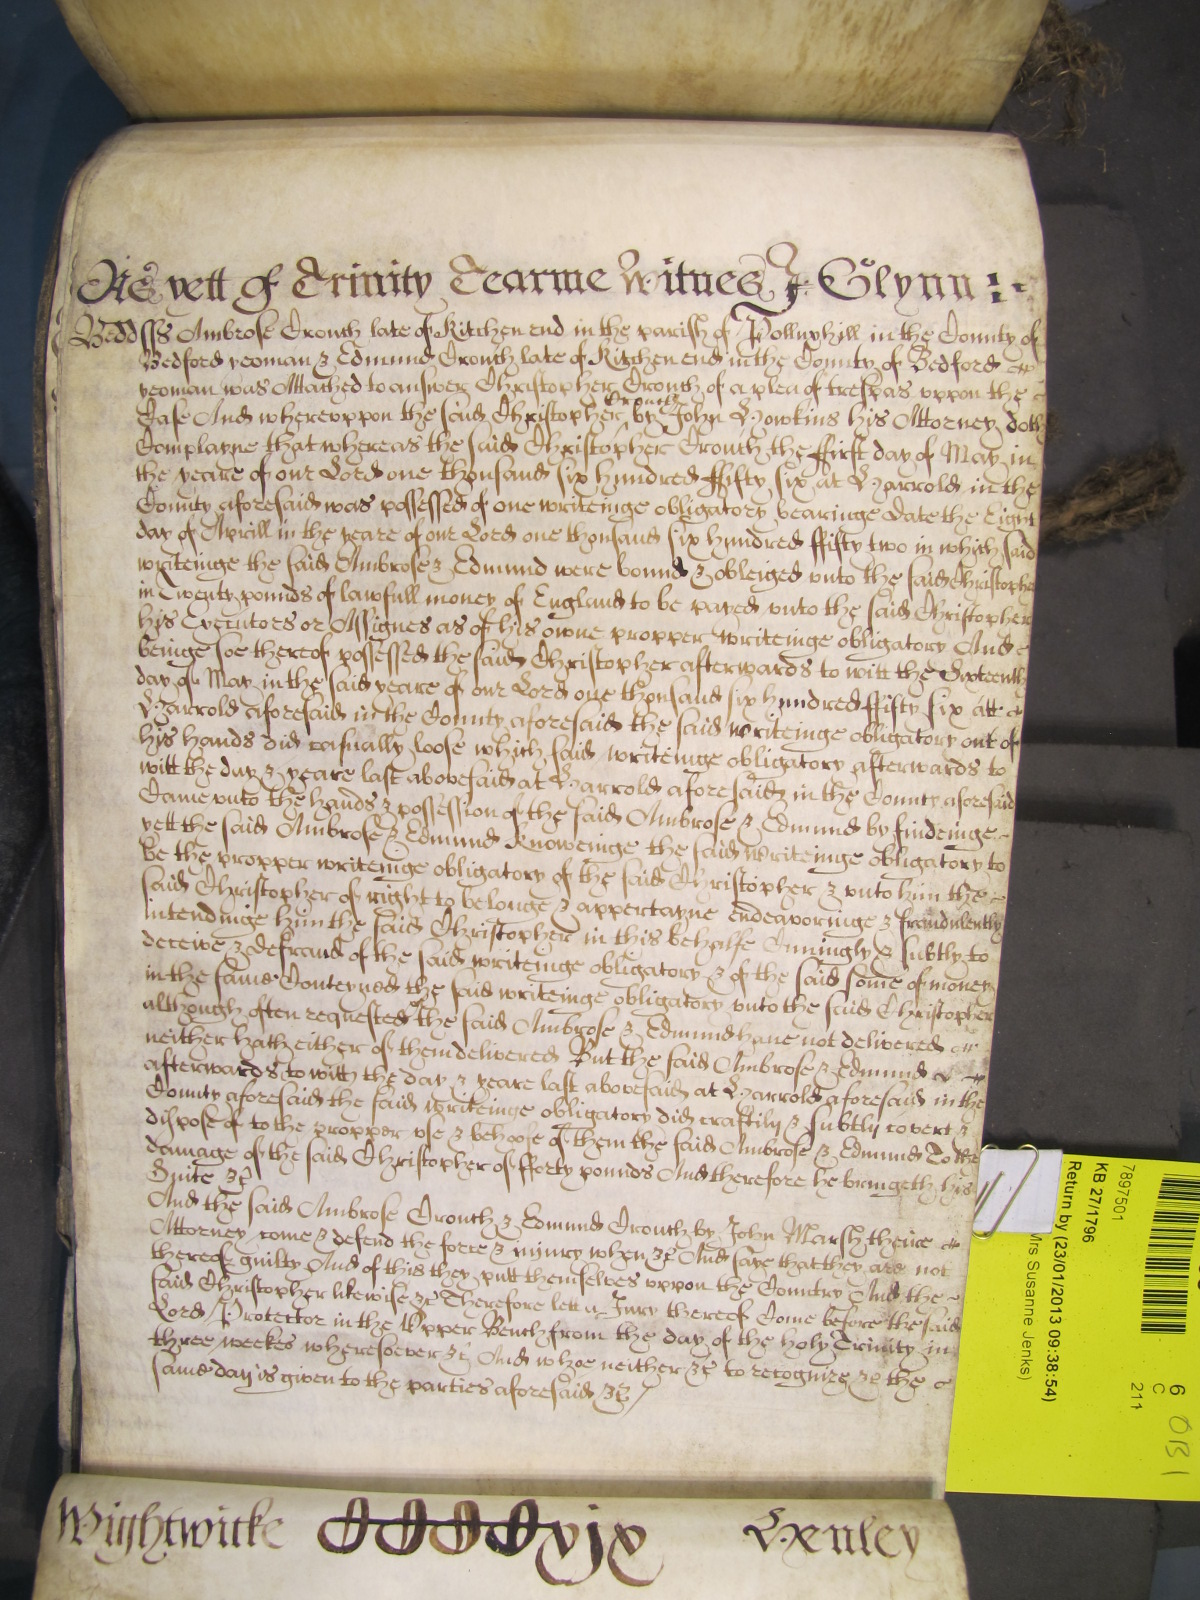 As yett of Trinity Tearme Witnes J Glynn
Bedd ss Ambrose Crouch late of Kitchen end in the parish of Polluxhill in the County of
Bedford yeoman & Edmund Crouch late of Kitchen end in the County of Bedford
yeoman was Attached to answer Christopher Crouch of a plea of trespas uppon the
Case And whereuppon the said Christopher Crouch by John Hawkins his Attorney doth
Complayne that whereas the said Christopher Crouch the ffirst day of May in
the yeare of our Lord one thousand six hundred ffifty six at Harrold in the
County aforesaid was possessed of one writeinge obligatory bearinge date the Eight
day of Aprill in the yeare of our Lord one thousand six hundred ffifty two in which said
writeinge the said Ambrose & Edmund were bound & obleiged unto the said Christopher
in Twenty pounds of lawfull money of England to be payed unto the said Christopher
his Executors or Assignes as of his owne propper writeinge obligatory And
beinge soe thereof possessed the said Christopher afterwards to witt the Sixteenth
day of May in the said yeare of our Lord one thousand six hundred ffifty six att
Harrold aforesaid in the County aforesaid the said writeinge obligatory out of
his hands did casually loose which said writeinge obligatory afterwards to
witt the day & yeare last abovesaid at Harrold aforesaid in the County aforesaid
Came unto the hands & possession of the said Ambrose & Edmund by findeinge
yett the said Ambrose & Edmund knoweinge the said writeinge obligatory to
be the propper writeinge obligatory of the said Christopher & unto him the
said Christopher of right to belonge & appertayne endeavoringe & fraudulently
intendinge him the said Christopher in this behalfe Cunningly & subtly to
deceive & defraud of the said writeinge obligatory & of the said some of money
in the same Conteyned the said writeinge obligatory unto the said Christopher
although often requested the said Ambrose & Edmund have not delivered
neither hath either of them delivered But the said Ambrose & Edmund
afterwards to witt the day & yeare last abovesaid at Harrold aforesaid in the
County aforesaid the said writeinge obligatory did craftily & subtly covert &
dispose of to the propper use & behoofe of them the said Ambrose & Edmund To the
damage of the said Christopher of fforty pounds And therefore he bringeth his
Suite &c
And the said Ambrose Crouch & Edmund Crouch by John Marsh theire
Attorney come & defend the force & injury when &c And saye that they are not
thereof guilty And of this they putt themselves uppon the Country And the
said Christopher likewise &c Therefore lett a Jury thereof Come before the said
Lord Protector in the Upper Bench from the day of the holy Trinity in
three weekes wheresoever &c And whoe neither &c to recognize &c the
same day is given to the parties aforesaid &c
Wightwicke CCCCxix Henley
7897501
KB 27/1796
Return by (23/01/2013 09:38:54)
Mrs Susanne Jenks)
6
C
211
OB1